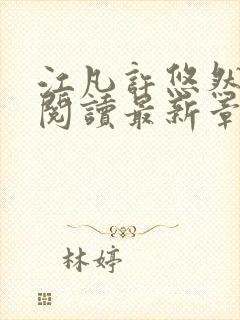 江凡許悠然
閱讀最新章
林婷